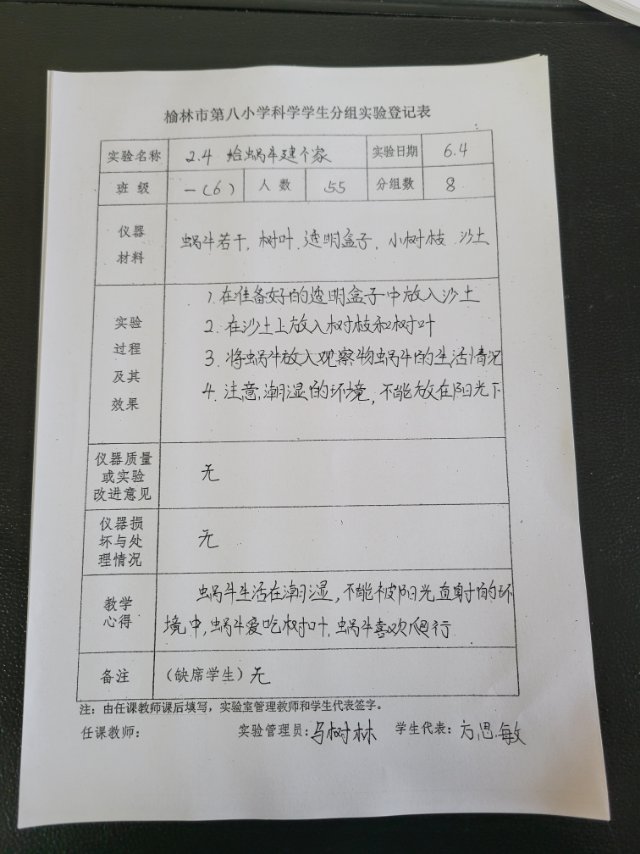 榆林市第八小学科学学生分组实验登记表
实验名称 2.4 给蜗牛建个家 实验日期 6.4
班 级 一(6) 人 数 55 分组数 8
仪器
材料
蜗牛若干, 树叶. 透明盒子. 小树枝 沙土
实验
过程
及其
效果
1. 在准备好的透明盒子中放入沙土
2. 在沙土上放入树枝和树叶
3. 将蜗牛放入观察物蜗牛的生活情况
4. 注意潮湿的环境, 不能放在阳光下
仪器质量
或实验
改进意见
无
仪器损
坏与处
理情况
无
教学
心得
蜗牛生活在潮湿, 不能被阳光直射的环
境中, 蜗牛爱吃树叶. 蜗牛喜欢爬行
备注 (缺席学生) 无
注: 由任课教师课后填写, 实验室管理教师和学生代表签字。
任课教师: 实验管理员: 马树林 学生代表: 方思敏